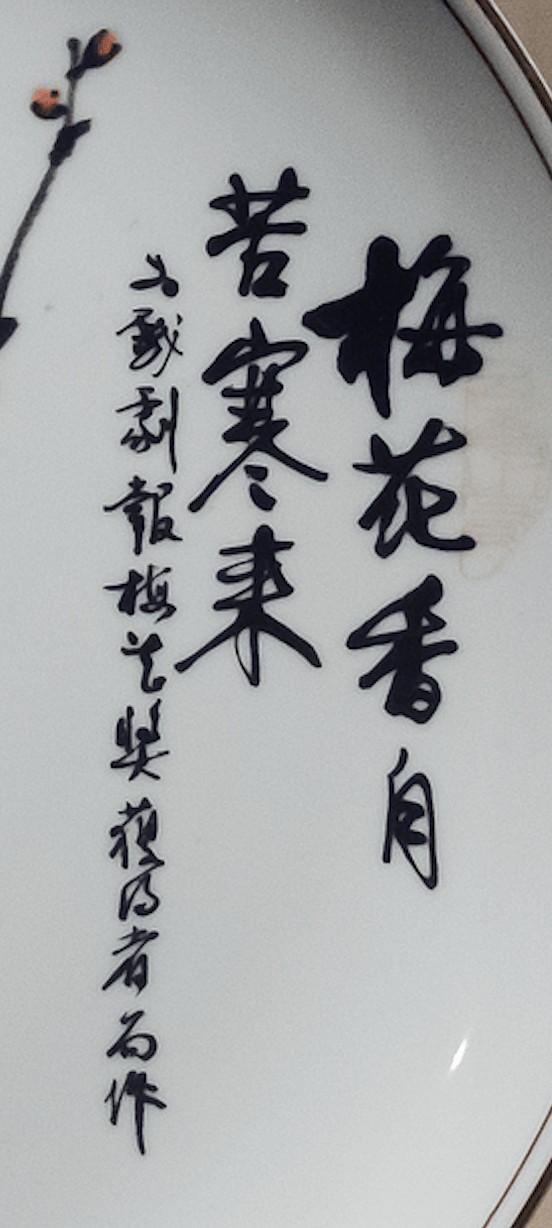 梅花香自
苦寒来
为戲劇報梅花奬獲得者而作